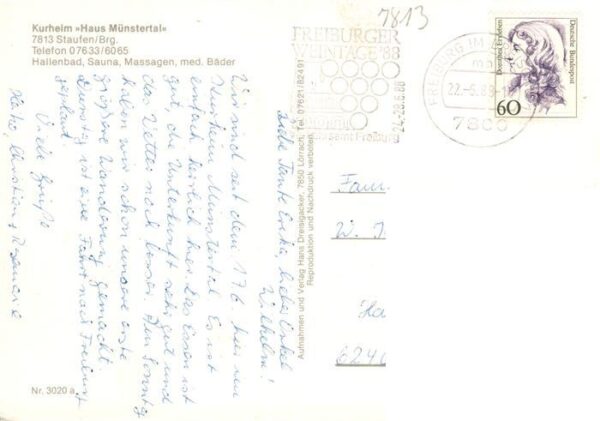 Kurheim »Haus Münstertal«
7813 Staufen/Brg.
Telefon 07633/6065
Hallenbad, Sauna, Massagen, med. Bäder
7813
FREIBURGER
WEINTAGE '88
24.-28.6.88
FREIBURG IM
22.-6.88
7800
Dorothea Erxleben
Deutsche Bundespost
60
Liebe Tante Erika, lieber Onkel
Wilhelm!
Wir sind seit dem 17.6. hier im
Kurheim Münstertal. Es ist
einfach herrlich hier. Das Essen ist
gut, die Unterkunft sehr gut und
das Wetter noch besser. Am Sonntag
haben wir schon unsere erste
grosse Wanderung gemacht.
ist eine Fahrt nach Freiburg
geplant.
Viele Grüße
Aufnahmen und Verlag Hans Dreisigacker, 7850 Lörrach, Tel. 07621/82491
Reproduktion und Nachdruck verboten.
Fam.
W.
Ha
6240
Nr. 3020 a